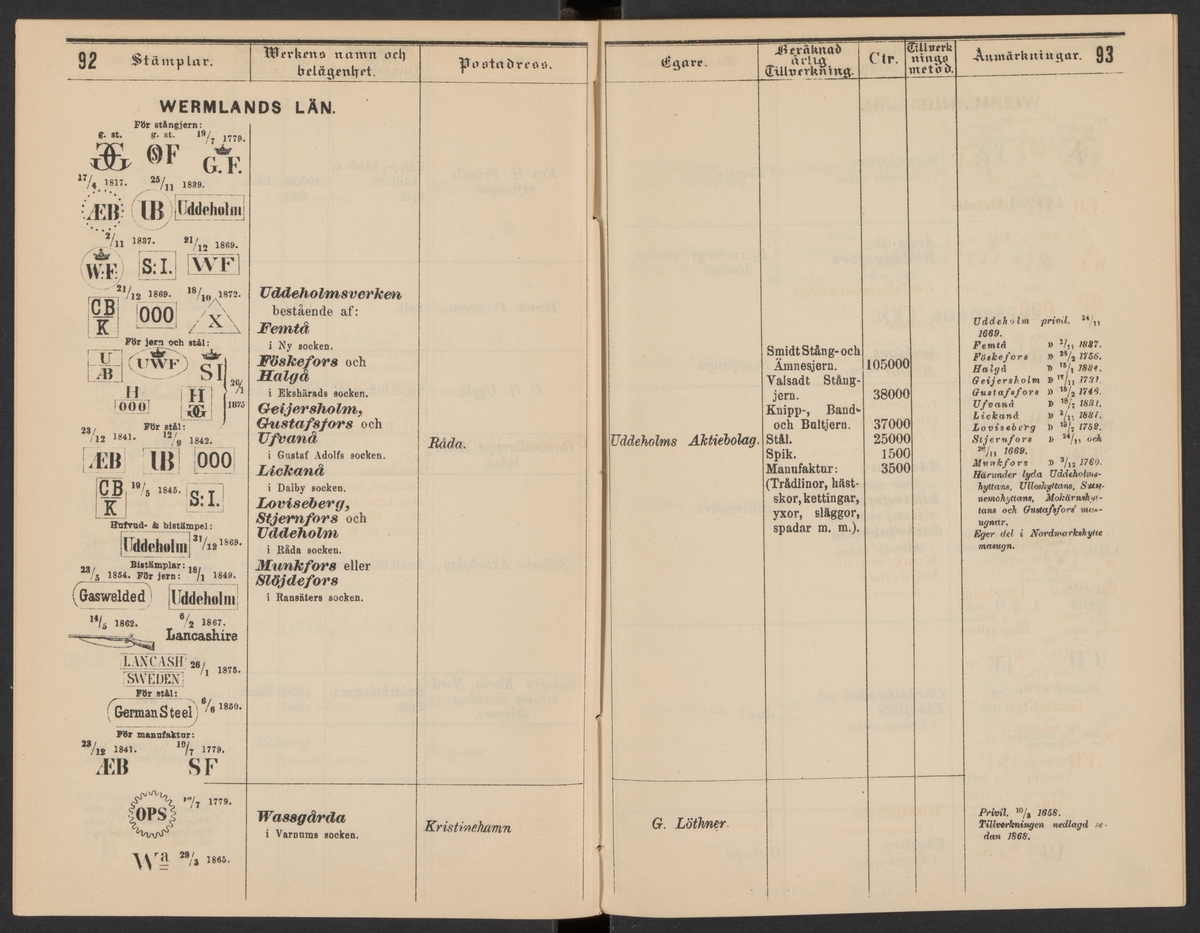 92
Stämplar.
Werkens namn och
belägenhet.
Postadress.
WERMLANDS LÄN.
För stångjern:
g. st. g. st. 19/7 1779.
GG ØF G.F.
17/4 1817. 25/11 1839.
ÆB UB Uddeholm
2/11 1837. 21/12 1869.
W.F. S:I. WF
21/12 1869. 18/10 1872.
CB
K
000 X
För jern och stål:
U
ÆB
UWF SI
H
000
H
GG
26/1
1875
För stål:
23/12 1841. 12/9 1842.
ÆB UB 000
CB
K
19/5 1845. S:I.
Hufvud- & bistämpel:
Uddeholm 31/12 1869.
Bistämplar:
23/5 1854. För jern: 18/1 1849.
Gaswelded Uddeholm
14/5 1862. 6/2 1867.
Lancashire
LANCASH
SWEDEN
26/1 1875.
För stål:
German Steel 6/6 1850.
För manufaktur:
23/12 1841. 19/7 1779.
ÆB SF
Uddeholmsverken
bestående af:
Femtå
i Ny socken.
Föskefors och
Halgå
i Ekshärads socken.
Geijersholm,
Gustafsfors och
Ufvanå
i Gustaf Adolfs socken.
Lickanå
i Dalby socken.
Loviseberg,
Stjernfors och
Uddeholm
i Råda socken.
Munkfors eller
Slöjdefors
i Ransäters socken.
Råda.
OPS 1779.
Wa 29/3 1865.
Wassgårda
i Varnums socken.
Kristinehamn
Egare.
Beräknad
årlig
Tillverkning.
Ctr.
Tillverk
nings
metod.
Anmärkningar.
93
Uddeholms Aktiebolag.
Smidt Stång- och
Ämnesjern. 105000
Valsadt Stång-
jern. 38000
Knipp-, Band-
och Bultjern. 37000
Stål. 25000
Spik. 1500
Manufaktur: 3500
(Trådlinor, häst-
skor, kettingar,
yxor, släggor,
spadar m. m.).
Uddeholm privil. 24/11
1669.
Femtå » 2/11 1837.
Föskefors » 25/2 1756.
Halgå » 15/1 1834.
Geijersholm » 17/11 1731.
Gustafsfors » 1746.
Ufvanå » 18/7 1831.
Lickanå » 2/11 1837.
Loviseberg » 1758.
Stjernfors » 24/11 och
1669.
Munkfors » 3/12 1760.
Härunder lyda Uddeholms-
hyttans, Ulleshyttans, Sun-
nemohyttans, Mokärnshyt-
tans och Gustafsfors' mas-
ugnar.
Eger del i Nordmarkshytte
masugn.
G. Löthner.
Privil. 10/3 1658.
Tillverkningen nedlagd se-
dan 1868.